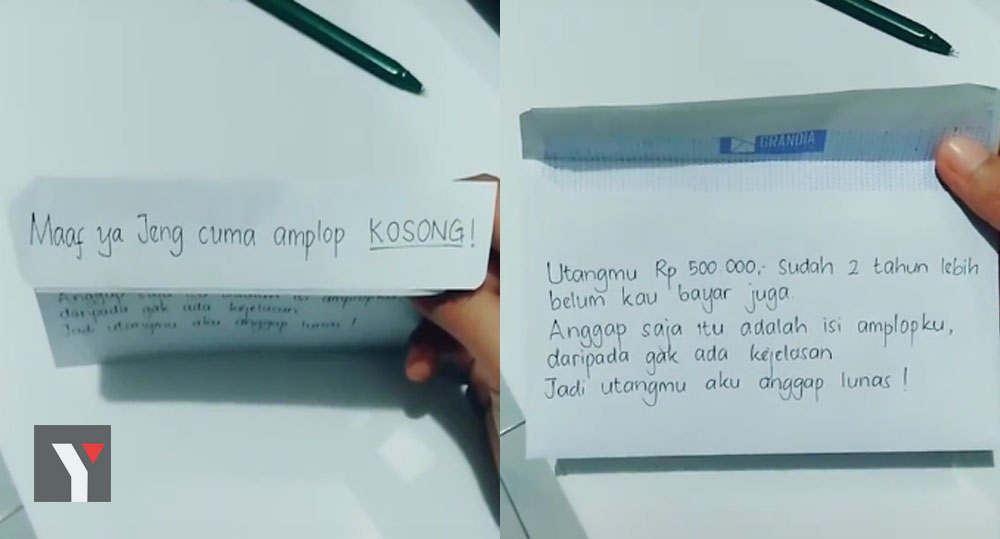 Maaf ya Jeng cuma amplop KOSONG!
Anggap saja itu adalah isi amplopku
daripada gak ada kejelasan
Jadi utangmu aku anggap lunas !
Y
GRANDIA
Utangmu Rp 500 000,- Sudah 2 tahun lebih
belum kau bayar juga.
Anggap saja itu adalah isi amplopku,
daripada gak ada kejelasan
Jadi utangmu aku anggap lunas !